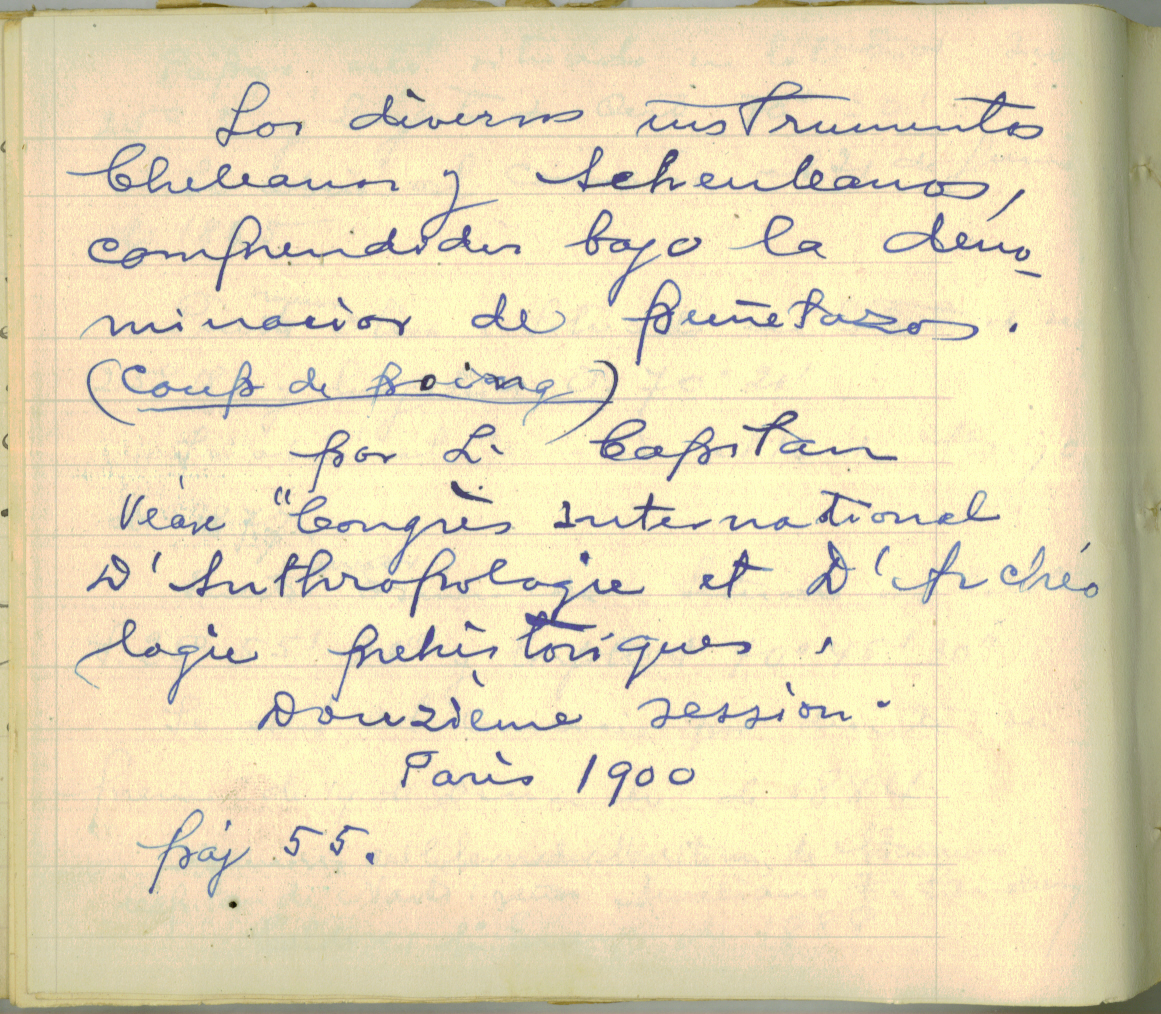 Los diversos instrumentos
Cheleanos y Acheuleanos,
comprendidos bajo la deno-
minacion de puñetazos.
(coup de poing)
por L. Capitan
Véase "Congrès International
D'Anthropologie et D'Archéo
logie prehistoriques.
Douzième session.
Paris 1900
páj 55.